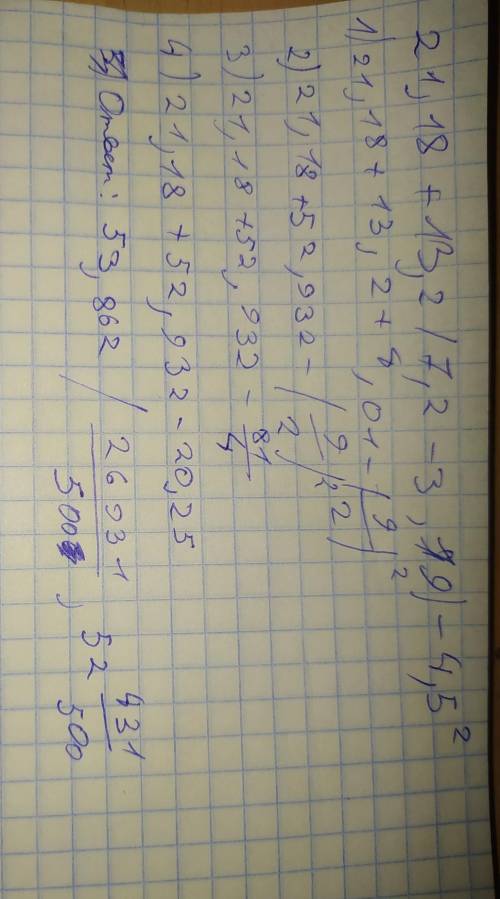 21,18 + 13,2 (7,2 - 3,19) - 4,5²
1) 21,18 + 13,2 * 4,01 - (9/2)²
2) 21,18 + 52,932 - (9²/2²)
3) 21,18 + 52,932 - 81/4
4) 21,18 + 52,932 - 20,25
5) Ответ: 53,862 / 26931/500, 52 431/500